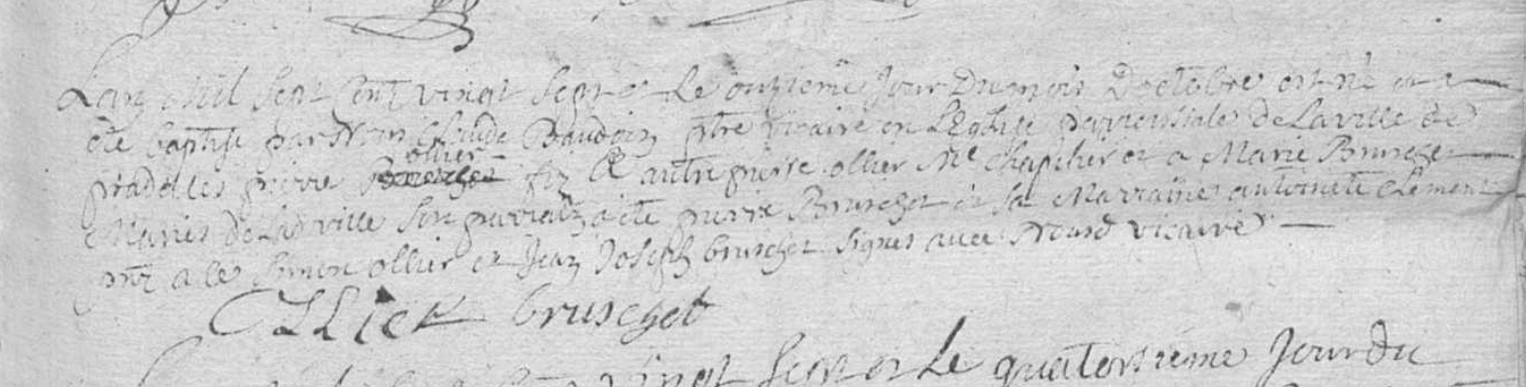 Lan Mil sept cent vingt sept et Le onzieme Jour Du mois Doctobre est né et a
éte baptise par Nous Claude Baudoin ptre vicaire en L'Eglise parroissiale de Laville de
pradelles pierre ollier fiz a autre pierre ollier Me chapelier et a Marie Bruschet
Maries de Lad ville son parrain a éte pierre Bruschet et sa Marraine antoinete Clement
ollier et Jean Joseph bruschet signes avec Nousd vicaire
Ollier bruschet
vingt sept et Le quatorsieme Jour du